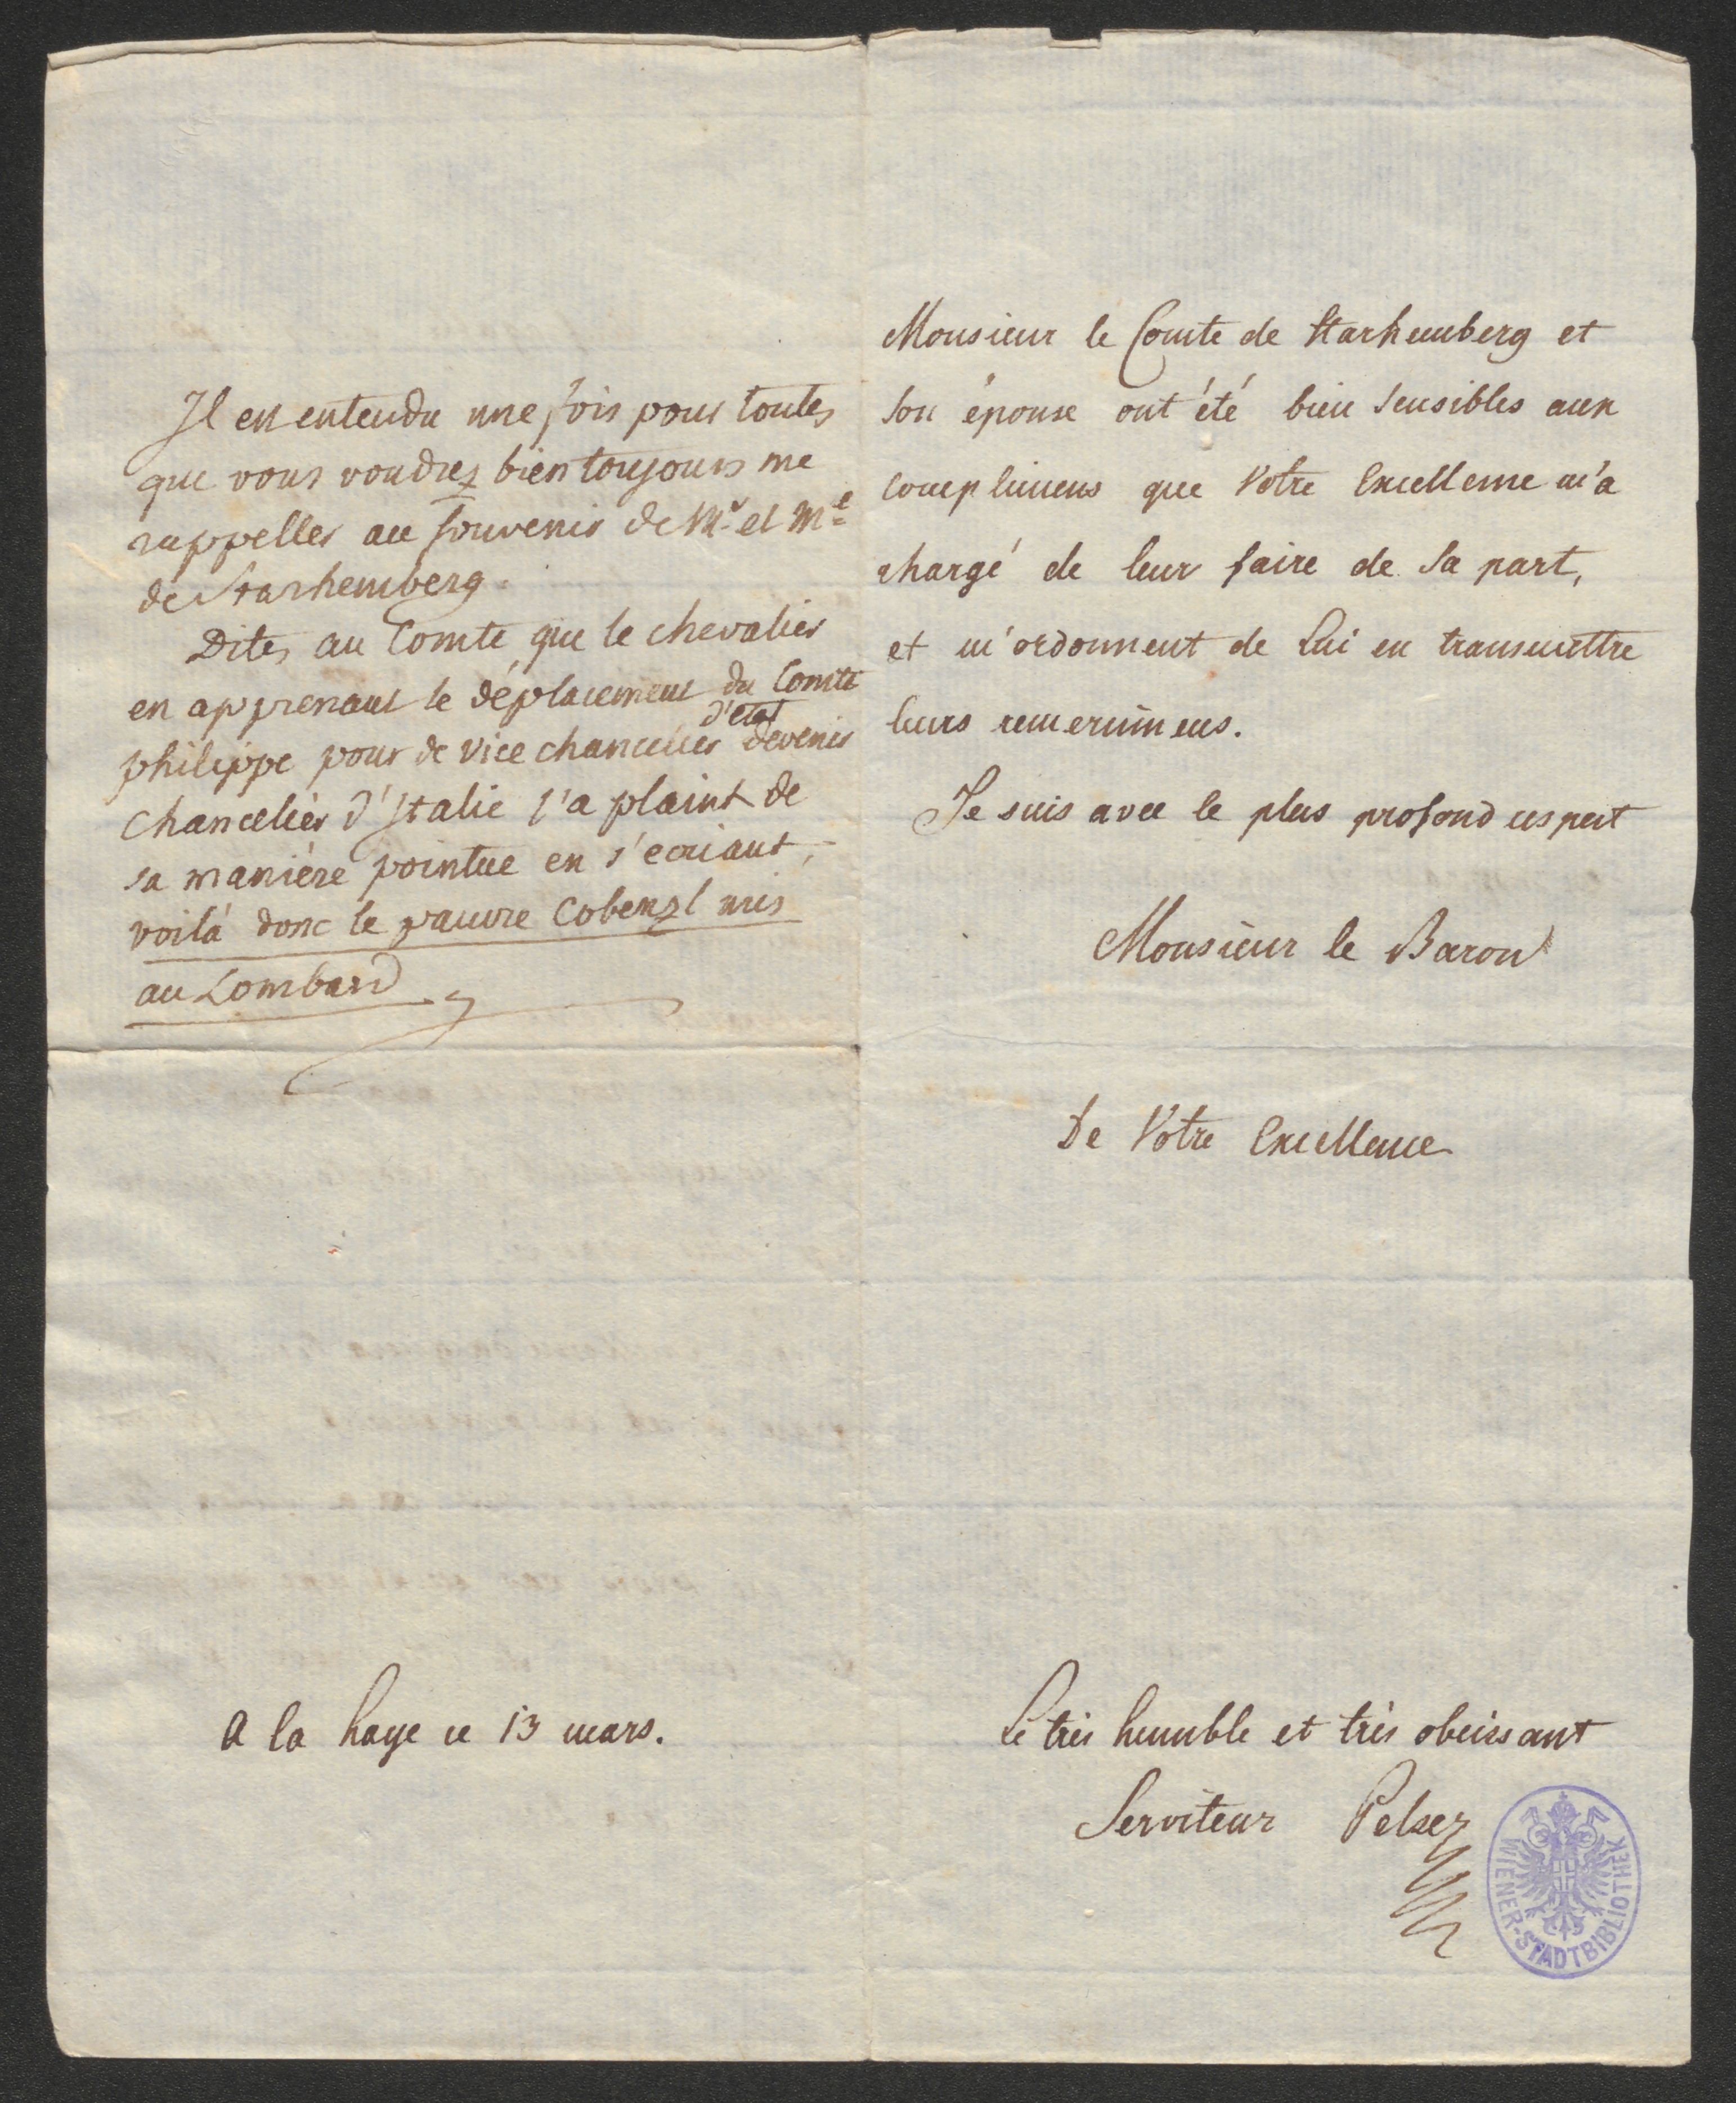 Il est entendu une fois pour toutes
que vous voudrez bien toujours me
rappeller au souvenir de Mr et Me
de Starhemberg.
Dites au Comte que le chevalier
en apprenant le déplacement du Comte
philippe pour de vice chancelier d'etat devenir
chancelier d'Italie l'a plaint de
sa manière pointue en s'ecriant,
voilà donc le pauvre Cobenzl mis
au Lombard
a la haye ce 13 mars.
Monsieur le Comte de Starhemberg et
son épouse ont été bien sensibles aux
complimens que Votre Excellence m'a
chargé de leur faire de sa part,
et m'ordonnent de lui en transmettre
leurs remercimens.
Je suis avec le plus profond respect
Monsieur le Baron
De Votre Excellence
Le très humble et très obeissant
Serviteur Pelser
WIENER-STADTBIBLIOTHEK